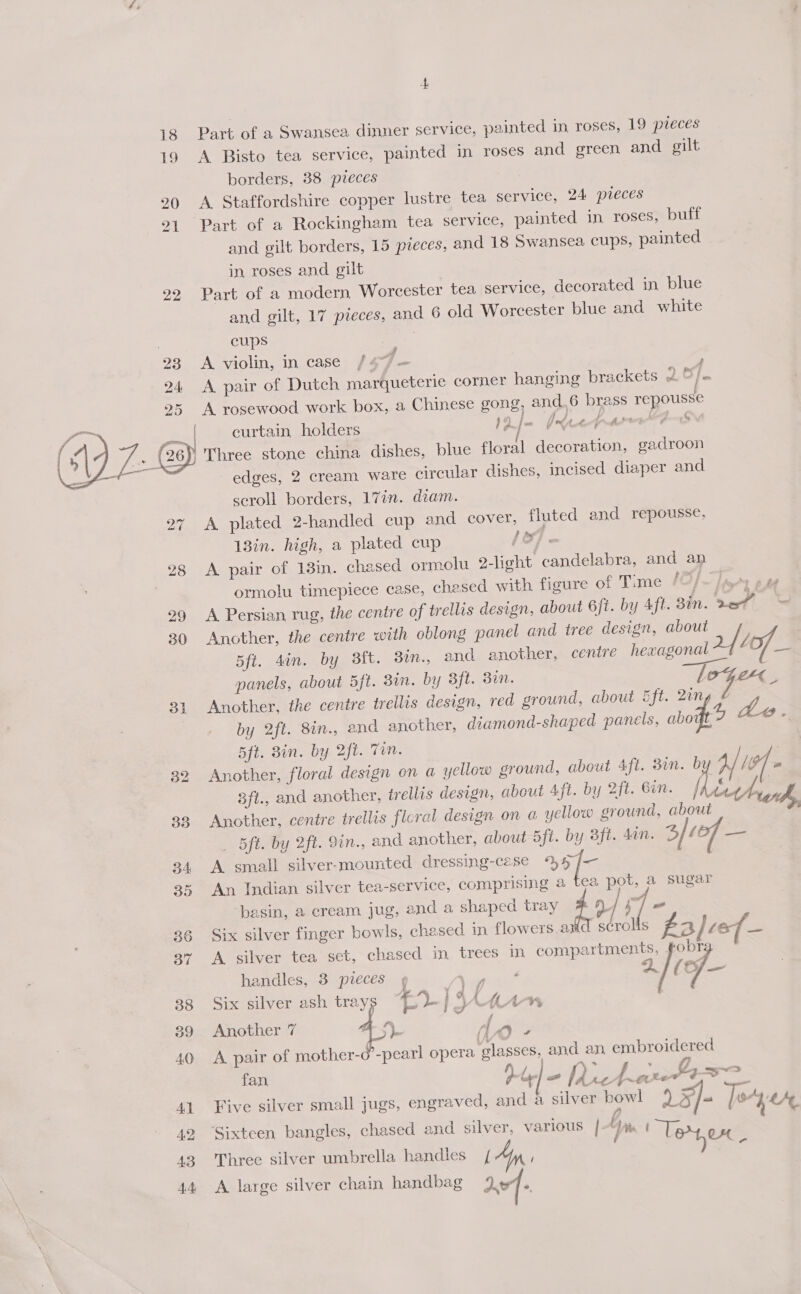 4
18 Part of a Swansea dinner service, painted in roses, 19 pieces
19 A Bisto tea service, painted in roses and green and gilt
borders, 38 pieces
20 A Staffordshire copper lustre tea service, 24 pieces
21 Part of a Rockingham tea service, painted in roses, buff
and gilt borders, 15 pieces, and 18 Swansea cups, painted
in roses and gilt
22 Part of a modern Worcester tea service, decorated in blue
and gilt, 17 pieces, and 6 old Worcester blue and white
cups
23 A violin, in case
24 A pair of Dutch marqueterie corner hanging brackets
25 A rosewood work box, a Chinese gong, and 6 brass repousse
curtain holders 12/-
26 Three stone china dishes, blue floral decoration, gadroon
edges, 2 cream ware circular dishes, incised diaper and
scroll borders, 17in. diam.
27 A plated 2-handled cup and cover, fluted and repousse,
13in. high, a plated cup
28 A pair of 13in. chased ormolu 2-light candelabra, and an
ormolu timepiece case, chased with figure of Time
29 A Persian rug, the centre of trellis design, about 6ft. by 4ft. 3in.
30 Another, the centre with oblong panel and tree design, about
5ft. 4in. by 3ft. 3in., and another, centre hexagonal 2/10/-
panels, about 5ft. 3in. by 3ft. 3in.
31 Another, the centre trellis design, red ground, about 5ft. 2in.
by 2ft. 8in., and another, diamond-shaped panels, about do.
5ft. 3in. by 2ft. 7in.
32 Another, floral design on a yellow ground, about 4ft. 3in. by
3ft., and another, trellis design, about 4ft. by 2ft. 6in.
33 Another, centre trellis floral design on a yellow ground, about
5ft. by 2ft. 9in., and another, about 5ft. by 3ft. 4in. 3/10/-
34 A small silver-mounted dressing-case
35 An Indian silver tea-service, comprising a tea pot, a sugar
basin, a cream jug, and a shaped tray
36 Six silver finger bowls, chased in flowers and scrolls £3/10/-
37 A silver tea set, chased in trees in compartments, cobra
handles, 3 pieces 2/10/-
38 Six silver ash trays
39 Another 7 do.
40 A pair of mother-o'-pearl opera glasses, and an embroidered
fan
41 Five silver small jugs, engraved, and a silver bowl 25/-
42 Sixteen bangles, chased and silver, various
43 Three silver umbrella handles
44 A large silver chain handbag